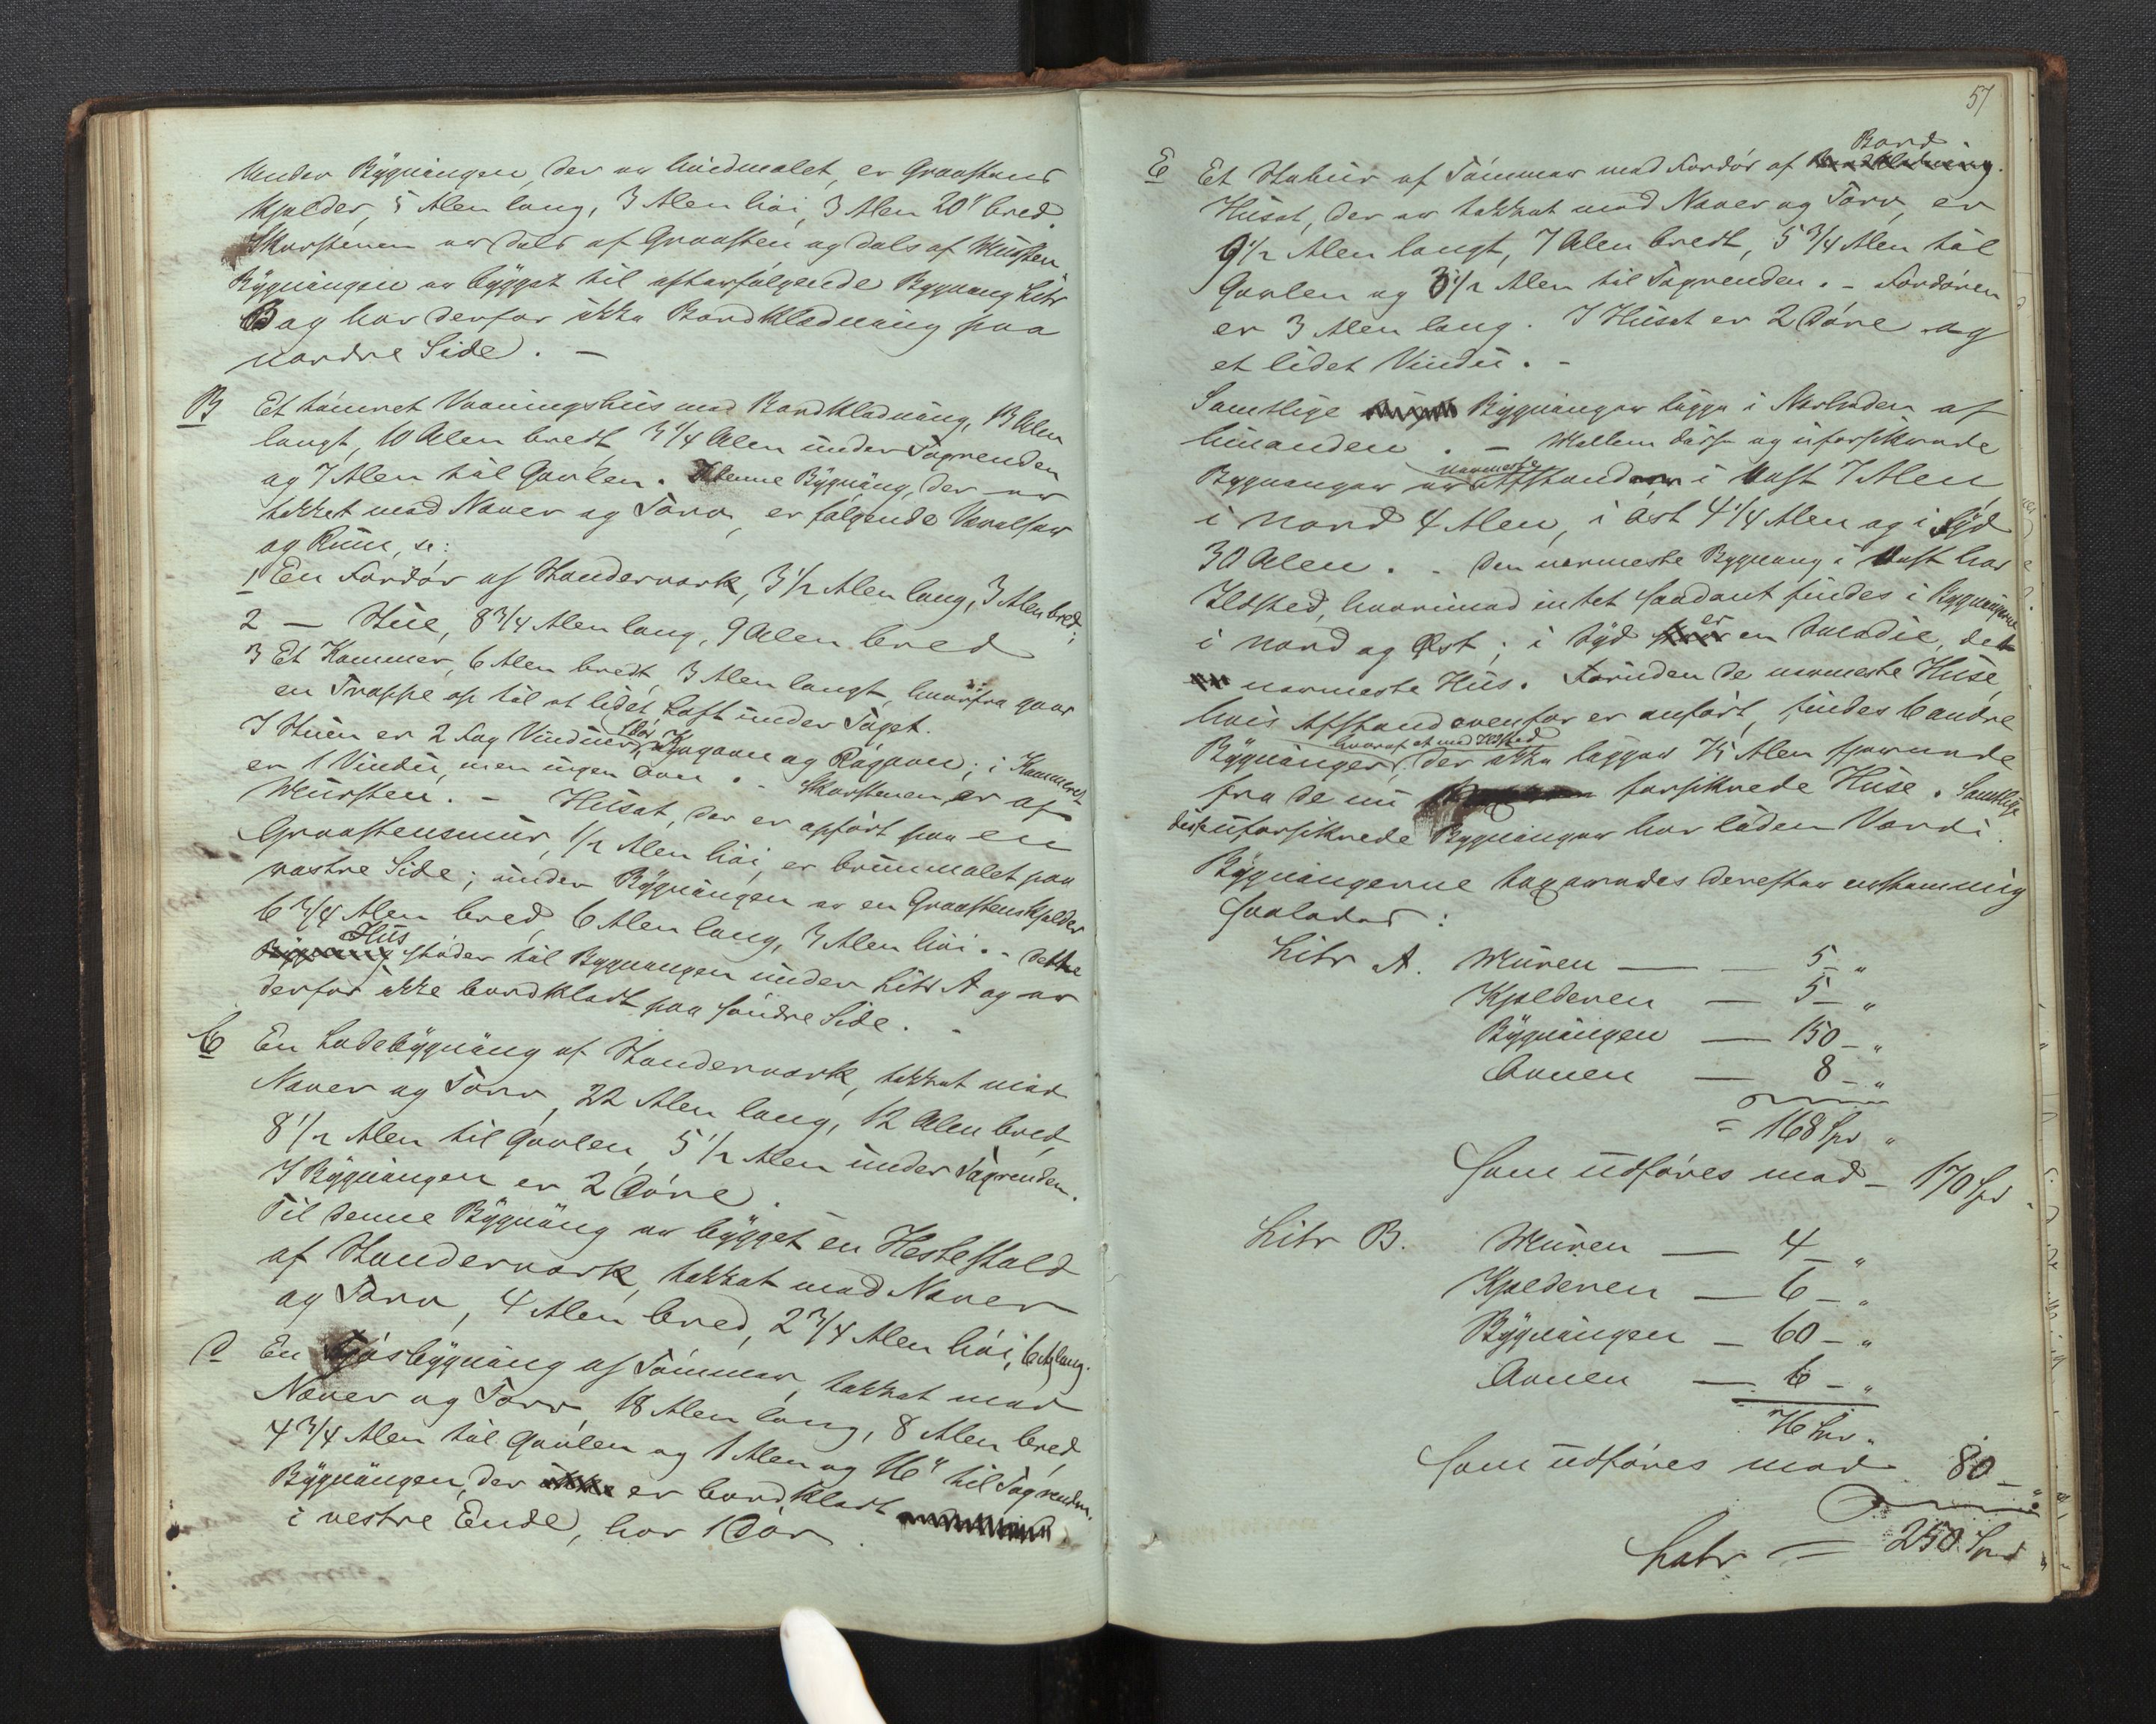 Under Bygningen, der er hvidmalet, er Graastens
Kjelder, 5 Alen lang, 3 Alen høi, 3 Alen 20" bred.
Skorstenen er dels af Graasten og dels af Mursten
Bygningen er bygget til efterfølgende Bygning Litr
B og har derfor ikke Bordklædning paa
nordre Side. –
B Et tømret Vaaningshus med Bordklædning, 13 Alen
langt, 10 Alen bredt, 3 1/4 Alen under Tagrenden
og 7 Alen til Gavlen. I denne Bygning, der er
tækket med Næver og Torv, er følgende Værelser
og Rum, se:
1 En Fordør af Standerværk, 3 1/2 Alen lang, 3 Alen bred;
2 — Stue, 8 3/4 Alen lang, 9 Alen bred
3 Et Kammer, 6 Alen bredt, 3 Alen langt, hvorfra gaar
en Trappe op til et lidet Loft under Taget.
I Stuen er 2 Fag Vinduer, 1 Dør, Kogovn og Bagovn; i Kammeret
er 1 Vindu, men ingen Ovn. Skorstenen er af
Mursten. – Huset, der er opført paa en
Graastensmur, 1/2 Alen høi, er brunmalet paa
vestre Side; under Bygningen er en Graastenskjelder
6 3/4 Alen bred, 6 Alen lang, 3 Alen høi. – Dette
Hus
støder til Bygningen under Litr A og er
derfor ikke bordklædt paa søndre Side. –
C En Ladebygning af Standerværk, tækket med
Næver og Torv, 22 Alen lang, 12 Alen bred,
8 1/2 Alen til Gavlen, 5 1/2 Alen under Tagrenden.
I Bygningen er 2 Døre.
Til denne Bygning er bygget en Hestestald
af Standerværk, tækket med Næver
og Torv, 4 Alen bred, 2 3/4 Alen høi, 6 Al lang.
D En Fjøsbygning af Tømmer, tækket med
Næver og Torv, 18 Alen lang, 8 Alen bred,
4 3/4 Alen til Gavlen og 1 Alen og 16" til Tagrenden.
Bygningen, der er bordklædt
i vestre Ende, har 1 Dør.
57
Bord
E Et Stabur af Tømmer med Fordør af
Huset, der er tækket med Næver og Torv, er
9 1/2 Alen langt, 7 Alen bredt, 5 3/4 Alen til
Gavlen og 3 1/2 Alen til Tagrenden. – Fordøren
er 3 Alen lang. I Huset er 2 Døre og
et lidet Vindu. –
Samtlige Bygninger ligge i Nærheden af
hinanden. – Mellem disse og uforsikrede
nærmeste
Bygninger er Afstanden i Vest 7 Alen
i Nord 4 Alen, i Øst 4 1/4 Alen og i Syd
30 Alen. – Den nærmeste Bygning i Vest har
Ildsted, hvorimod intet saadant findes i Bygningerne
i Nord og Øst; i Syd er en Smedie, det
nærmeste Hus. Foruden de nærmeste Huse,
hvis Afstand ovenfor er anført, findes 6 andre
hvoraf et med Ildsted
Bygninger, der ikke ligger 75 Alen fjernede
fra de nu forsikrede Huse. Samtlige
disse uforsikrede Bygninger har liden Værdi.
Bygningerne taxeredes derefter enstemmig
saaledes:
Litr A. Muren — — 5 – "
Kjelderen — 5 – "
Bygningen — 150 – "
Ovnen — 8 – "
= 168 Spd "
som udføres med – 170 Spd "
Litr B. Muren — 4 – "
Kjelderen — 6 – "
Bygningen — 60 – "
Ovnen — 6 – "
76 Spd "
som udføres med 80 – "
Latr = 250 Spd "